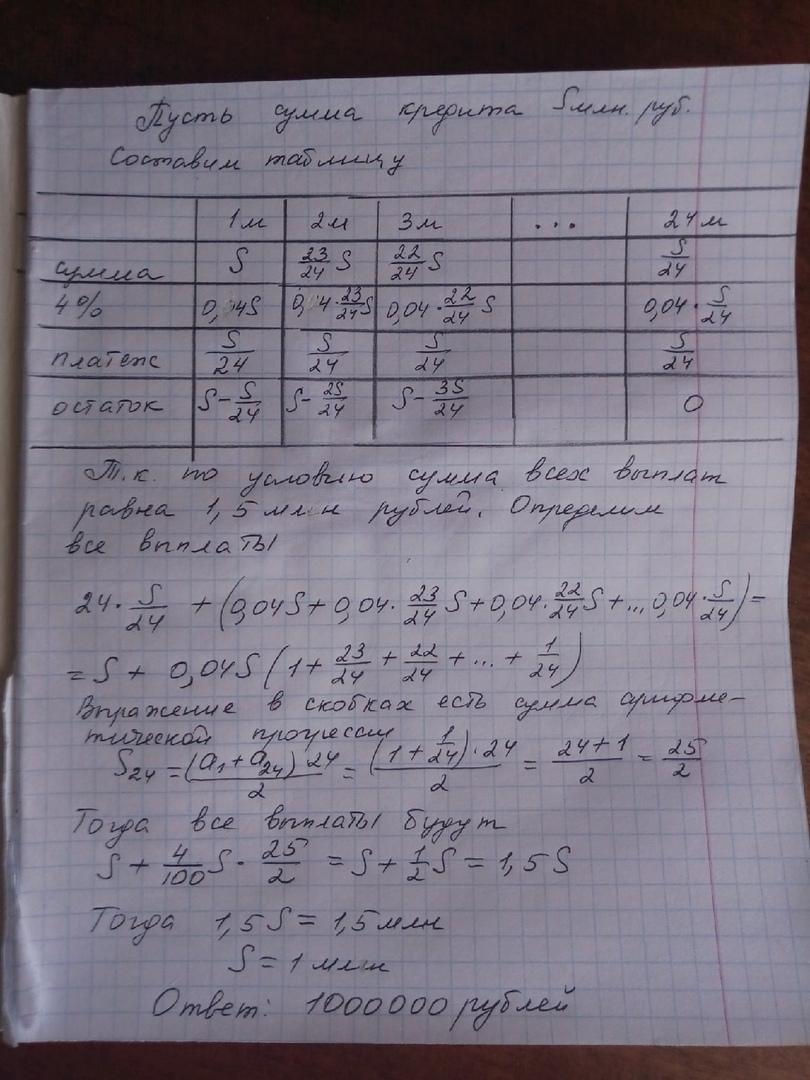 Пусть сумма кредита S млн. руб.
Составим таблицу
1м 2м 3м ... 24м
сумма S 23/24 S 22/24 S S/24
4% 0,04S 0,04·23/24 S 0,04·22/24 S 0,04·S/24
платеж S/24 S/24 S/24 S/24
остаток S-S/24 S-2S/24 S-3S/24 0
Т.к. по условию сумма всех выплат
равна 1,5 млн рублей. Определим
все выплаты
24·S/24 + (0,04S+0,04·23/24 S+0,04·22/24 S+...0,04·S/24)=
=S + 0,04S(1+23/24+22/24+...+1/24)
Выражение в скобках есть сумма арифме-
тической прогрессии
S24 = (a1+a24)·24/2 = (1+1/24)·24/2 = 24+1/2 = 25/2
Тогда все выплаты будут
S + 4/100 S·25/2 = S+1/2 S = 1,5S
Тогда 1,5S = 1,5 млн
S = 1 млн
Ответ: 1000000 рублей